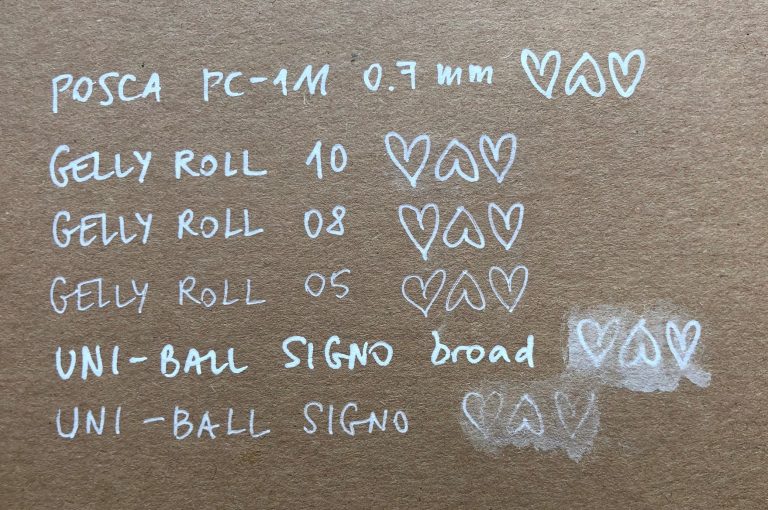 POSCA PC-1M 0.7 mm
GELLY ROLL 10
GELLY ROLL 08
GELLY ROLL 05
UNI-BALL SIGNO broad
UNI-BALL SIGNO